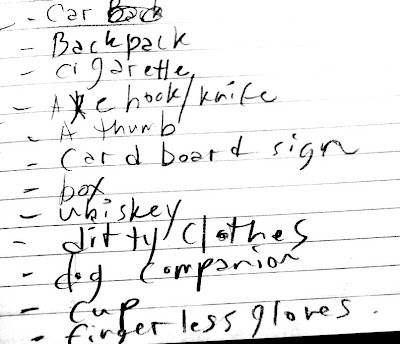 - Car
- Backpack
- cigarette
- Axe hook/knife
- A thumb
- Card board sign
- box
- whiskey
- ditty/clothes
- dog companion
- cup
- fingerless gloves.